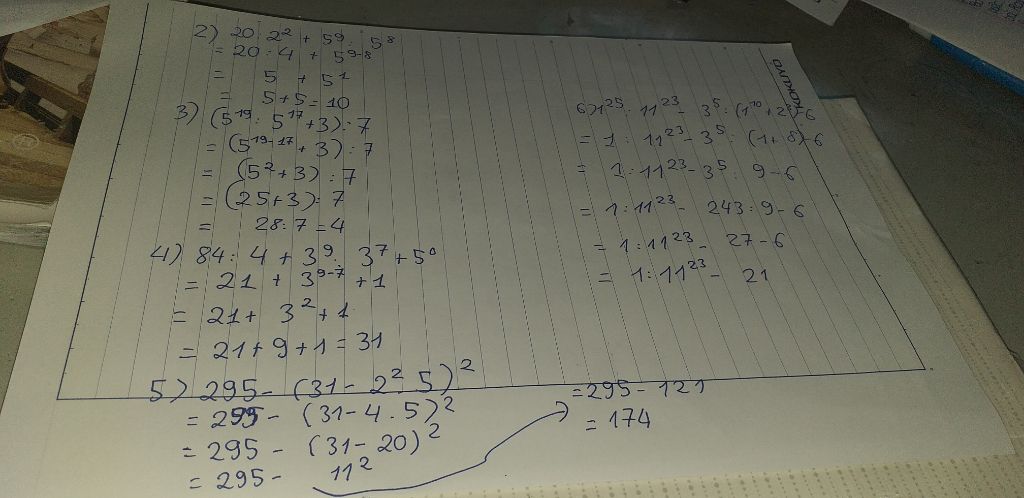 2) 20 : 2² + 5⁹ : 5⁸
= 20 : 4 + 5⁹⁻⁸
= 5 + 5¹
= 5 + 5 = 10
3) (5¹⁹ : 5¹⁷ + 3) : 7
= (5¹⁹⁻¹⁷ + 3) : 7
= (5² + 3) : 7
= (25 + 3) : 7
= 28 : 7 = 4
4) 84 : 4 + 3⁹ : 3⁷ + 5⁰
= 21 + 3⁹⁻⁷ + 1
= 21 + 3² + 1
= 21 + 9 + 1 = 31
5) 295 - (31 - 2² . 5)²
= 295 - (31 - 4 . 5)²
= 295 - (31 - 20)²
= 295 - 11²
= 295 - 121
= 174
KOKUYO
6) 1²⁵ : 11²³ - 3⁵ : (1¹⁰ + 2³) - 6
= 1 : 11²³ - 3⁵ : (1 + 8) - 6
= 1 : 11²³ - 3⁵ : 9 - 6
= 1 : 11²³ - 243 : 9 - 6
= 1 : 11²³ - 27 - 6
= 1 : 11²³ - 21